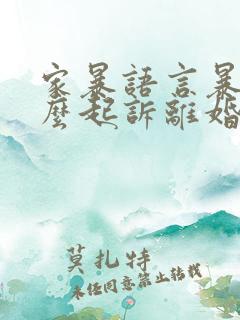 家暴語言暴
麼起訴離婚
莫扎特
未經同意禁止轉載